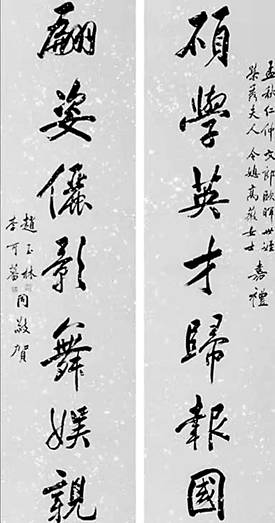 孟秋仁仲 文郎歐暉世誼
夫人 令媳萬薇女士
嘉禮
碩學英才歸報國
翩姿儷影舞娛親
趙玉林
李可蕃
同敬賀